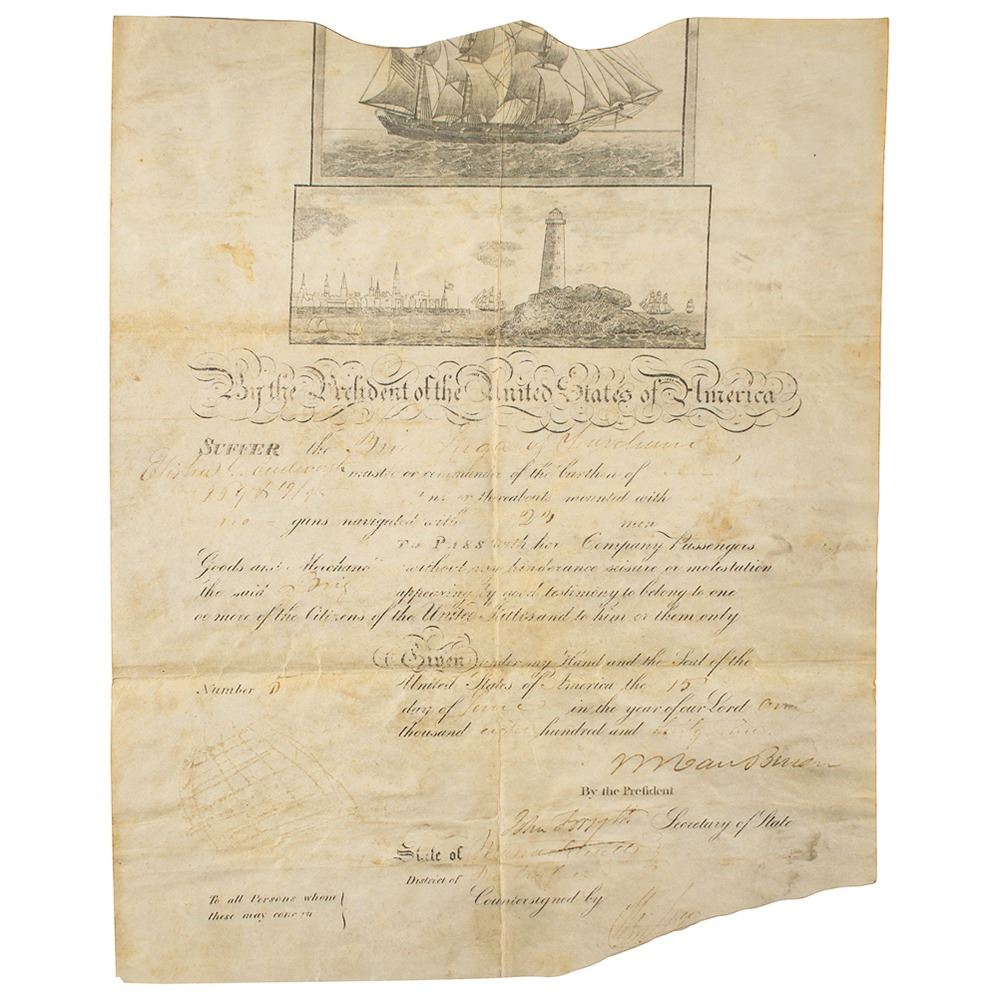 By the President of the United States of America
SUFFER the Brig of
master or commander of the burthen of
tons or thereabouts mounted with
no guns navigated with 23 men
TO PASS with her Company Passengers
Goods and Merchandize without any hinderance seisure or molestation
the said Brig appearing by good testimony to belong to one
or more of the Citizens of the United States and to him or them only
Given under my Hand and the Seal of the
Number United States of America the 15
day of June in the year of our Lord One
thousand eight hundred and thirty
M Van Buren
By the President
John Forsyth Secretary of State
State of
District of
To all Persons whom Countersigned by
these may concern